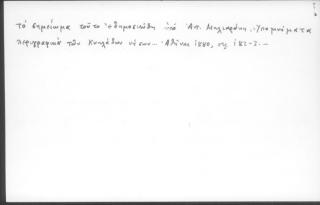 τὸ σημείωμα τοῦτο ἐδημοσιεύθη ὑπὸ Ἀντ. Μηλιαράκη, Ὑπομνήματα
περιγραφικὰ τῶν Κυκλάδων νήσων.— Ἀθῆναι 1880, σς 182-3.—